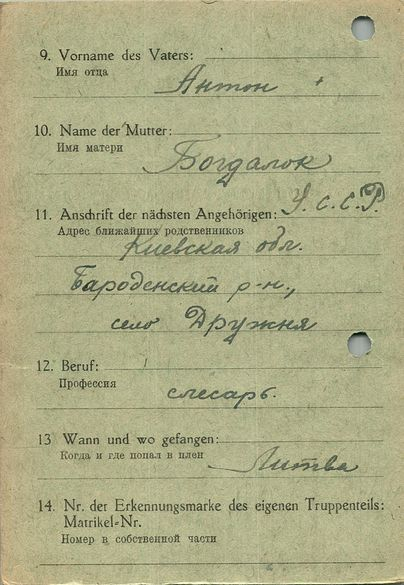 9. Vorname des Vaters:
Имя отца
Антон +
10. Name der Mutter:
Имя матери
Богдалок
11. Anschrift der nächsten Angehörigen: У.С.С.Р.
Адрес ближайших родственников
Киевская обл.
Бароденский р-н.,
село Дружня
12. Beruf:
Профессия
слесарь.
13 Wann und wo gefangen:
Когда и где попал в плен
Литва
14. Nr. der Erkennungsmarke des eigenen Truppenteils:
Matrikel-Nr.
Номер в собственной части